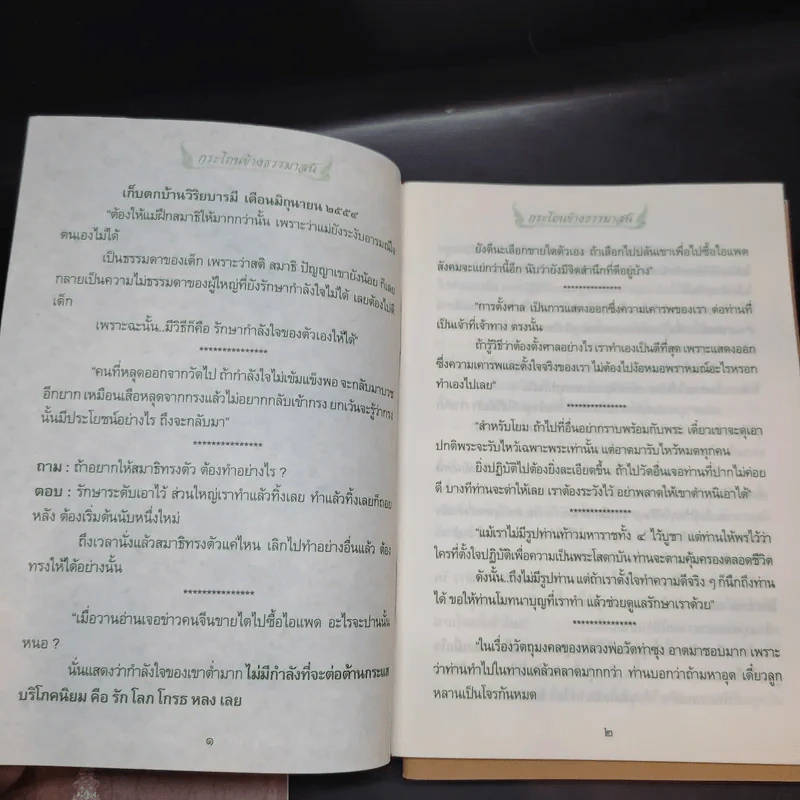 กระโถนข้างธรรมาสน์
เก็บตกบ้านวิริยบารมี เดือนมิถุนายน ๒๕๕๔
"ต้องให้แม่ฝึกสมาธิให้มากกว่านั้น เพราะว่าแม่ยังระงับอารมณ์ใจ
ตนเองไม่ได้
เป็นธรรมดาของเด็ก เพราะว่าสติ สมาธิ ปัญญาเขายังน้อย ก็เลย
กลายเป็นความไม่ธรรมดาของผู้ใหญ่ที่ยังรักษากำลังใจไม่ได้ เลยต้องไปตี
เด็ก
เพราะฉะนั้น..มีวิธีก็คือ รักษากำลังใจของตัวเองให้ได้"
***************
"คนที่หลุดออกจากวัดไป ถ้ากำลังใจไม่เข้มแข็งพอ จะกลับมาบวช
อีกยาก เหมือนเสือหลุดจากกรงแล้วไม่อยากกลับเข้ากรง ยกเว้นจะรู้ว่ากรง
นั้นมีประโยชน์อย่างไร ถึงจะกลับมา"
***************
ถาม : ถ้าอยากให้สมาธิทรงตัว ต้องทำอย่างไร ?
ตอบ : รักษาระดับเอาไว้ ส่วนใหญ่เราทำแล้วทิ้งเลย ทำแล้วทิ้งเลยก็ถอย
หลัง ต้องเริ่มต้นนับหนึ่งใหม่
ถึงเวลานั่งแล้วสมาธิทรงตัวแค่ไหน เลิกไปทำอย่างอื่นแล้ว ต้อง
ทรงให้ได้อย่างนั้น
***************
"เมื่อวานอ่านเจอข่าวคนจีนขายไตไปซื้อไอแพด อะไรจะปานนั้น
หนอ ?
นั่นแสดงว่ากำลังใจของเขาต่ำมาก ไม่มีกำลังที่จะต่อต้านกระแส
บริโภคนิยม คือ รัก โลภ โกรธ หลง เลย
๑
กระโถนข้างธรรมาสน์
ยังดีนะเลือกขายไตตัวเอง ถ้าเลือกไปปล้นเขาเพื่อไปซื้อไอแพด
สังคมจะแย่กว่านี้อีก นับว่ายังมีจิตสำนึกที่ดีอยู่บ้าง"
***************
"การตั้งศาล เป็นการแสดงออกซึ่งความเคารพของเรา ต่อท่านที่
เป็นเจ้าที่เจ้าทาง ตรงนั้น
ถ้ารู้วิธีว่าต้องตั้งศาลอย่างไร เราทำเองเป็นดีที่สุด เพราะแสดงออก
ซึ่งความเคารพและตั้งใจจริงของเรา ไม่ต้องไปง้อหมอพราหมณ์อะไรหรอก
ทำเองไปเลย"
***************
"สำหรับโยม ถ้าไปที่อื่นอย่ากราบพร้อมกับพระ เดี๋ยวเขาจะดุเอา
ปกติพระจะรับไหว้เฉพาะพระเท่านั้น แต่อาตมารับไหว้หมดทุกคน
ยิ่งปฏิบัติไปต้องยิ่งละเอียดขึ้น ถ้าไปวัดอื่นเจอท่านที่ปากไม่ค่อย
ดี บางทีท่านจะด่าให้เลย เราต้องระวังไว้ อย่าพลาดให้เขาตำหนิเอาได้"
***************
"แม้เราไม่มีรูปท่านท้าวมหาราชทั้ง ๔ ไว้บูชา แต่ท่านให้พรไว้ว่า
ใครที่ตั้งใจปฏิบัติเพื่อความเป็นพระโสดาบัน ท่านจะตามคุ้มครองตลอดชีวิต
ดังนั้น..ถึงไม่มีรูปท่าน แต่ถ้าเราตั้งใจทำความดีจริง ๆ ก็นึกถึงท่าน
ได้ ขอให้ท่านโมทนาบุญที่เราทำ แล้วช่วยดูแลรักษาเราด้วย"
***************
"ในเรื่องวัตถุมงคลของหลวงพ่อวัดท่าซุง อาตมาชอบมาก เพราะ
ว่าท่านทำไปในทางแคล้วคลาดมากกว่า ท่านบอกว่าถ้ามหาอุด เดี๋ยวลูก
หลานเป็นโจรกันหมด
๒